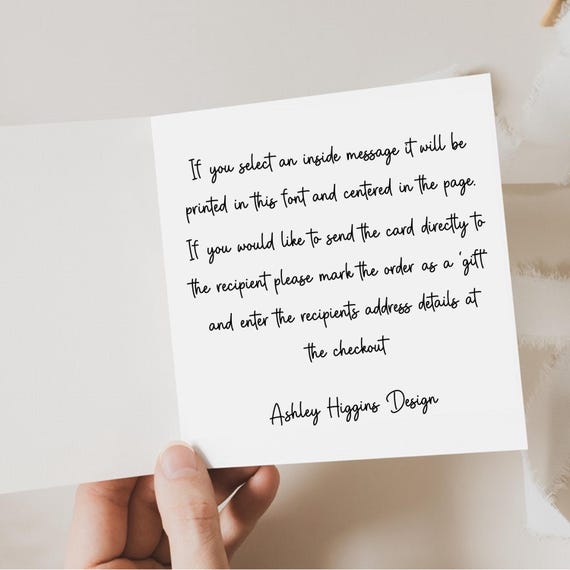 If you select an inside message it will be
printed in this font and centered in the page.
If you would like to send the card directly to
the recipient please mark the order as a 'gift'
and enter the recipients address details at
the checkout
Ashley Higgins Design